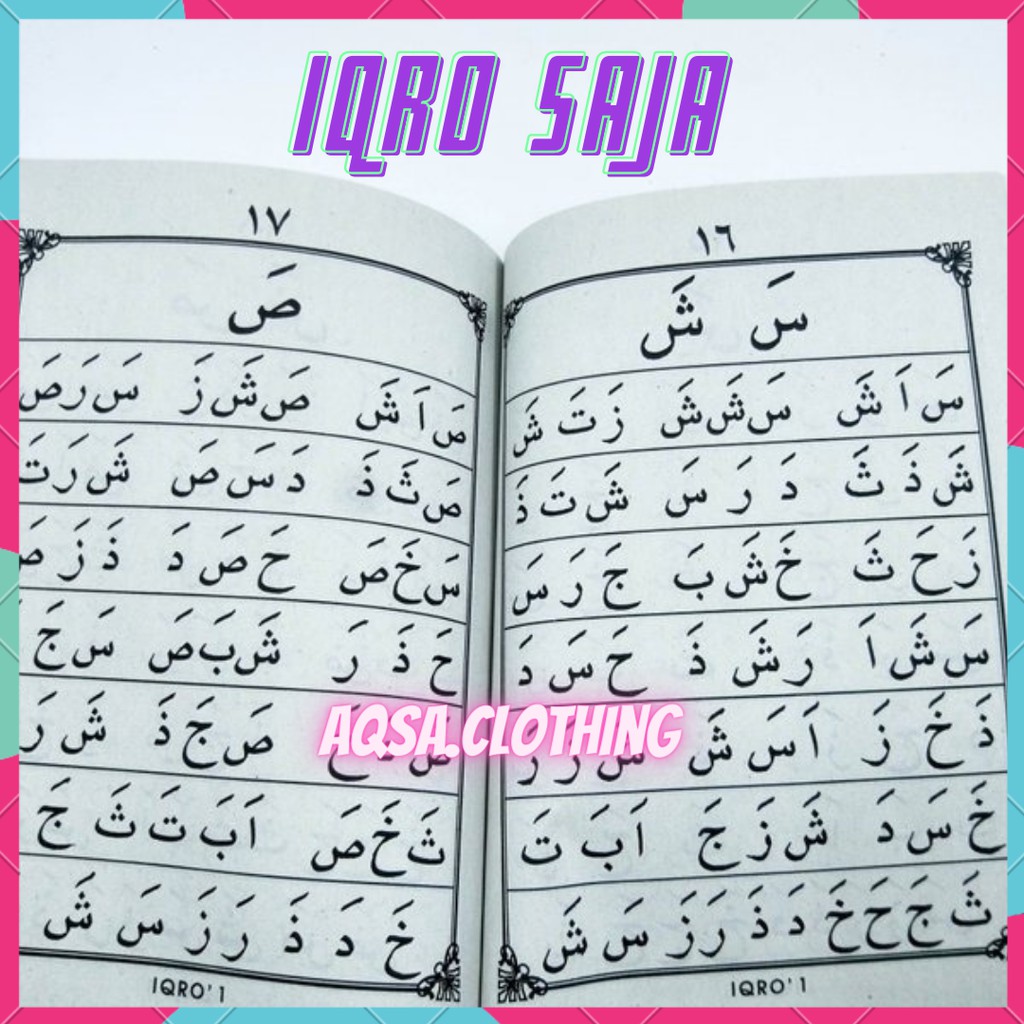 IQRO SAJA
١٦
سَ شَ
سَ اَ شَ سَ شَ شَ زَ تَ شَ
شَ ذَ ثَ دَ رَ سَ شَ تَ ذَ
زَ حَ ثَ خَ شَ بَ جَ رَ سَ
سَ شَ اَ رَ شَ ذَ حَ سَ دَ
ذَ خَ زَ اَ سَ شَ
خَ سَ دَ شَ زَ جَ اَ بَ تَ
ثَ جَ حَ خَ دَ ذَ رَ زَ سَ شَ
IQRO' 1
١٧
صَ
صَ اَ شَ صَ شَ زَ سَ رَ صَ
صَ ثَ ذَ دَ سَ صَ شَ رَ تَ
سَ خَ صَ حَ صَ دَ ذَ زَ صَ
حَ ذَ رَ شَ بَ صَ سَ جَ
صَ جَ ذَ شَ رَ
ثَ خَ صَ اَ بَ تَ ثَ جَ
خَ دَ ذَ رَ زَ سَ شَ
IQRO' 1
AQSA.CLOTHING